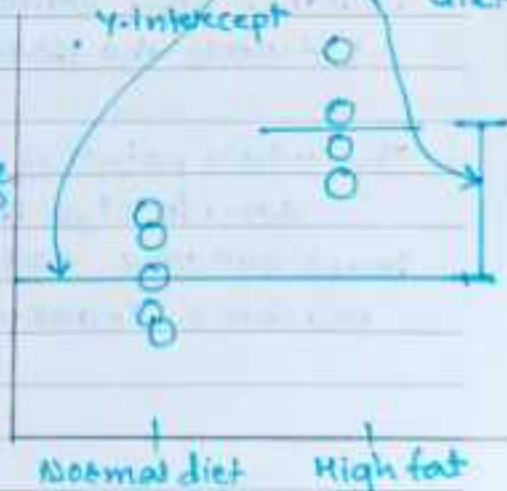 Y-intercept
Normal diet
High fat